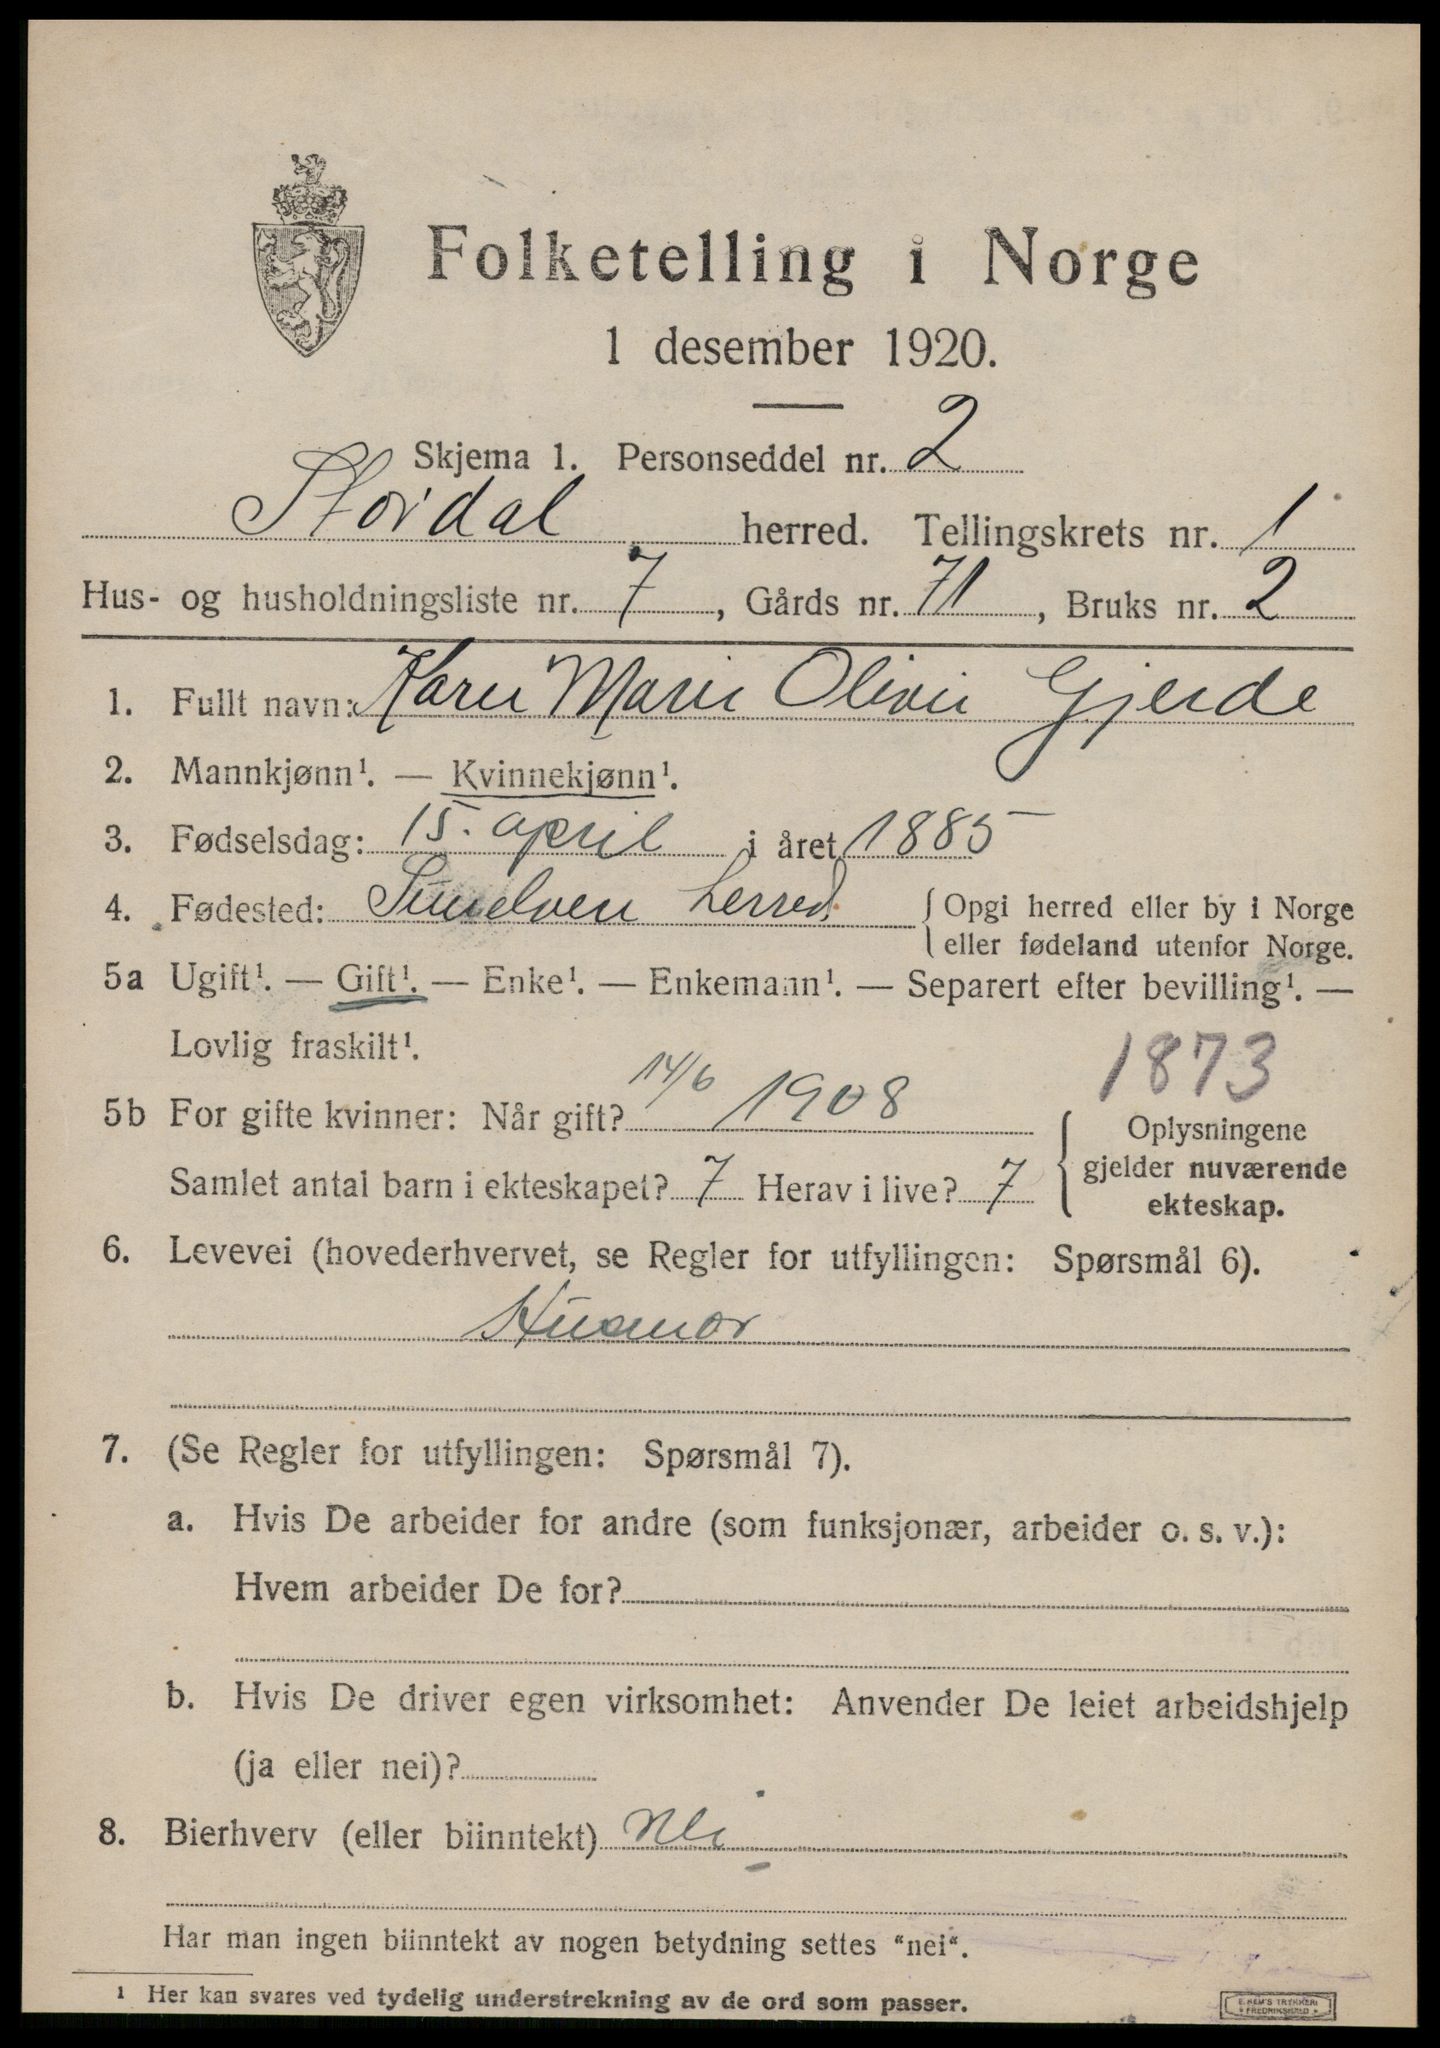 Folketelling i Norge
1 desember 1920.
Skjema 1. Personseddel nr. 2
Stordal herred. Tellingskrets nr. 1
Hus- og husholdningsliste nr. 7, Gårds nr. 71, Bruks nr. 2
1. Fullt navn: Karen Marie Olivie Gjerde
2. Mannkjønn¹. — Kvinnekjønn¹.
3. Fødselsdag: 15. april i året 1885
4. Fødested: Sunelven herred. { Opgi herred eller by i Norge
eller fødeland utenfor Norge.
5a Ugift¹. — Gift¹. — Enke¹. — Enkemann¹. — Separert efter bevilling¹. —
Lovlig fraskilt¹.
1873
5b For gifte kvinner: Når gift? 14/6 1908
Samlet antal barn i ekteskapet? 7 Herav i live? 7
{ Oplysningene
gjelder nuværende
ekteskap.
6. Levevei (hovederhvervet, se Regler for utfyllingen: Spørsmål 6).
Husmor
7. (Se Regler for utfyllingen: Spørsmål 7).
a. Hvis De arbeider for andre (som funksjonær, arbeider o. s. v.):
Hvem arbeider De for?
b. Hvis De driver egen virksomhet: Anvender De leiet arbeidshjelp
(ja eller nei)?
8. Bierhverv (eller biinntekt) Nei
Har man ingen biinntekt av nogen betydning settes "nei".
¹ Her kan svares ved tydelig understrekning av de ord som passer.
E. SEM'S TRYKKERI
FREDRIKSHALD